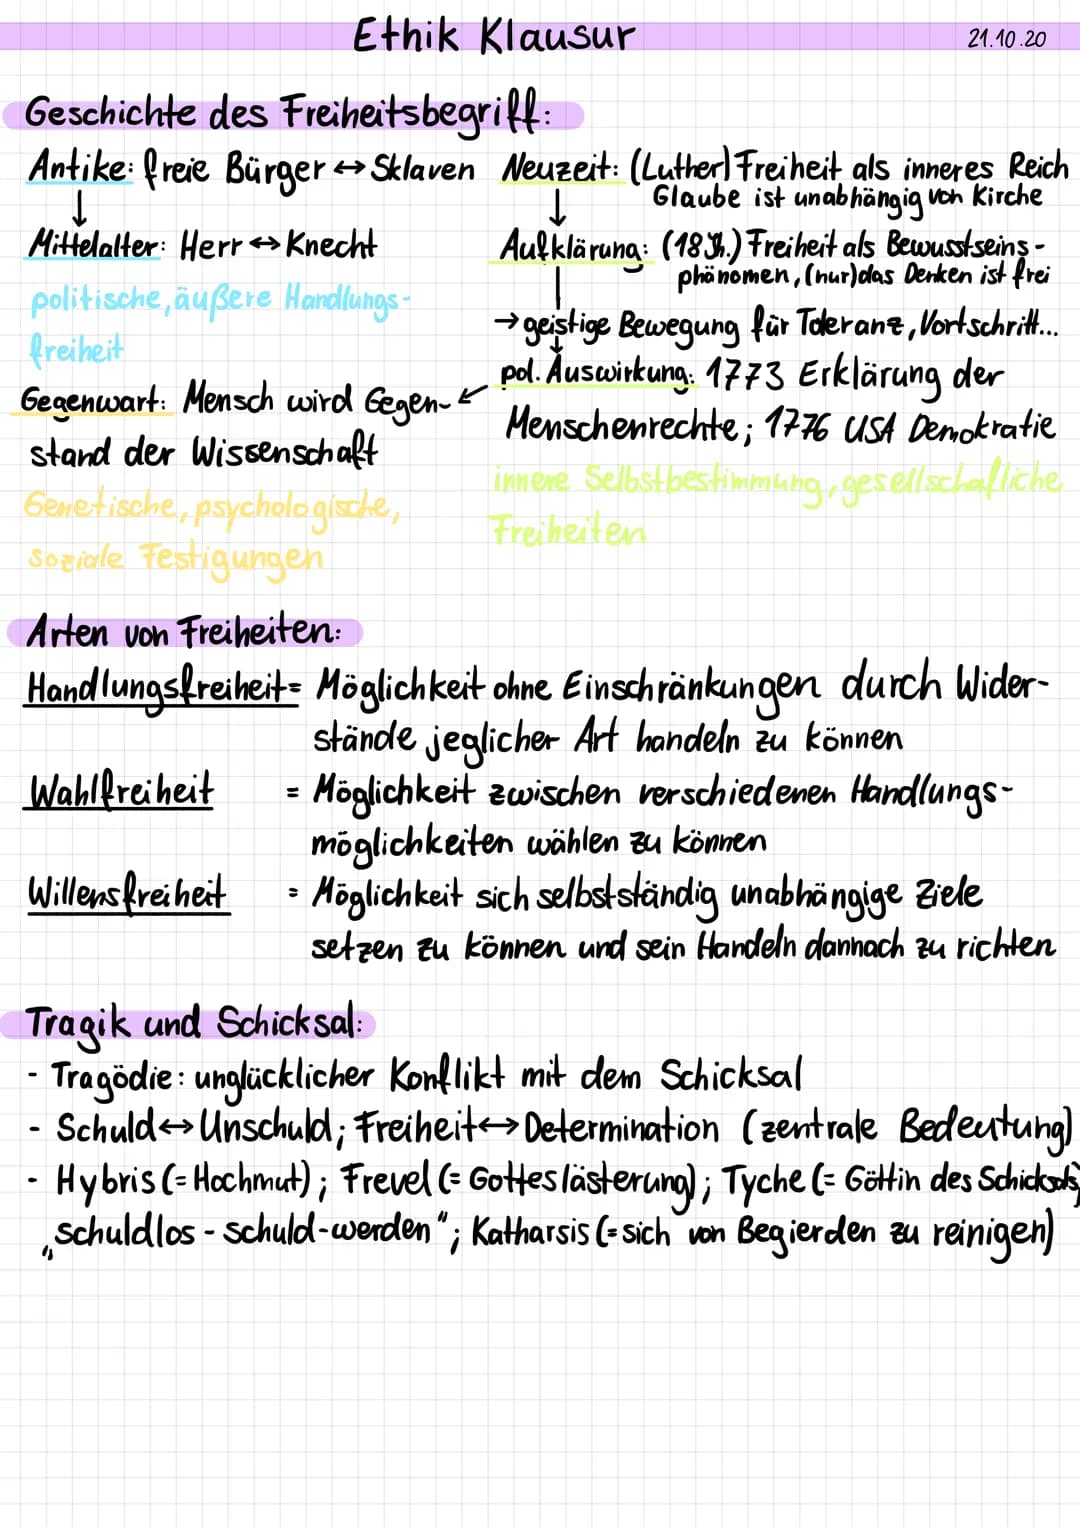 Ethik Klausur
21.10.20
Geschichte des Freiheitsbegriff:
Antike: freie Bürger ↔ Sklaven
↓
Mittelalter: Herr ↔ Knecht
politische, äußere Handlungs-
freiheit
Neuzeit: (Luther) Freiheit als inneres Reich
Glaube ist unabhängig von Kirche
↓
Aufklärung: (18 Jh.) Freiheit als Bewusstseins-
phänomen, (nur) das Denken ist frei
→ geistige Bewegung für Toleranz, Vortschritt...
↓
pol. Auswirkung: 1773 Erklärung der
Menschenrechte; 1776 USA Demokratie
innere Selbstbestimmung, gesellschafliche
Freiheiten
Gegenwart: Mensch wird Gegen-
stand der Wissenschaft
Genetische, psychologische,
soziale Festigungen
Arten von Freiheiten:
Handlungsfreiheit = Möglichkeit ohne Einschränkungen durch Wider-
stände jeglicher Art handeln zu können
Wahlfreiheit = Möglichkeit zwischen verschiedenen Handlungs-
möglichkeiten wählen zu können
Willensfreiheit = Möglichkeit sich selbstständig unabhängige Ziele
setzen zu können und sein Handeln dannach zu richten
Tragik und Schicksal:
- Tragödie: unglücklicher Konflikt mit dem Schicksal
- Schuld ↔ Unschuld; Freiheit ↔ Determination (zentrale Bedeutung)
- Hybris (= Hochmut); Frevel (= Gotteslästerung); Tyche (= Göttin des Schicksals)
„schuldlos - schuld-werden"; Katharsis (= sich von Begierden zu reinigen)